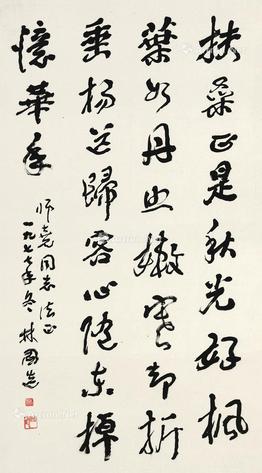 扶桑正是秋光好枫
叶如丹照嫩寒却折
垂杨送归客心随东棹
忆华年
师尧同志法正
一九七七年冬 林